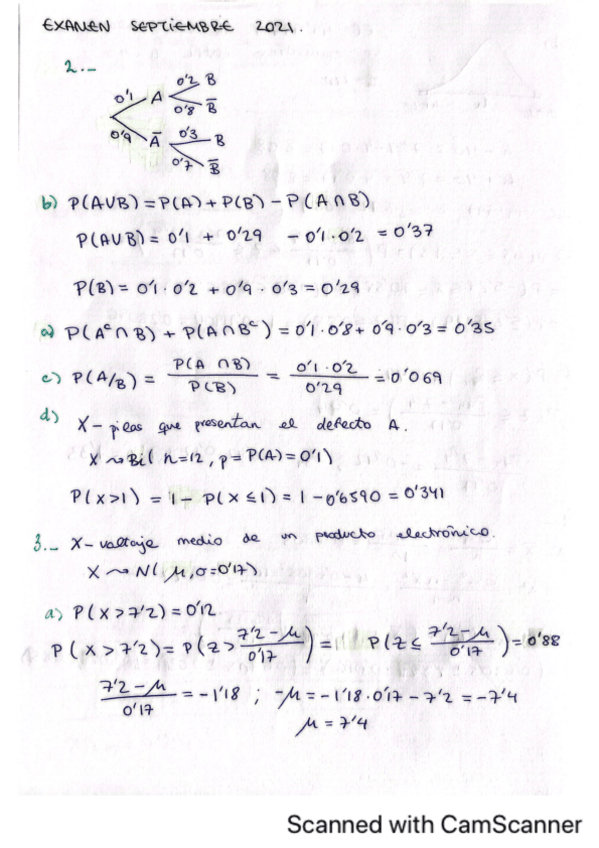 EXAMEN SEPTIEMBRE 2021.
2.-
0'1 A 0'2 B
0'8 B̅
0'9 A̅ 0'3 B
0'7 B̅
b) P(A∪B) = P(A) + P(B) - P(A∩B)
P(A∪B) = 0'1 + 0'29 - 0'1·0'2 = 0'37
P(B) = 0'1·0'2 + 0'9·0'3 = 0'29
a) P(Aᶜ∩B) + P(A∩Bᶜ) = 0'1·0'8 + 0'9·0'3 = 0'35
c) P(A/B) = P(A∩B) / P(B) = 0'1·0'2 / 0'29 = 0'069
d)
X- pilas que presentan el defecto A.
X ⤳ Bi(n=12, p=P(A)=0'1)
P(X>1) = 1 - P(X≤1) = 1 - 0'6590 = 0'341
3.- X- voltaje medio de un producto electrónico.
X ⤳ N(μ, σ=0'17)
a) P(X>7'2) = 0'12
P(X>7'2) = P(Z > 7'2-μ / 0'17) = 1 P(Z ≤ 7'2-μ / 0'17) = 0'88
7'2-μ / 0'17 = -1'18 ; -μ = -1'18·0'17 - 7'2 = -7'4
μ = 7'4
Scanned with CamScanner